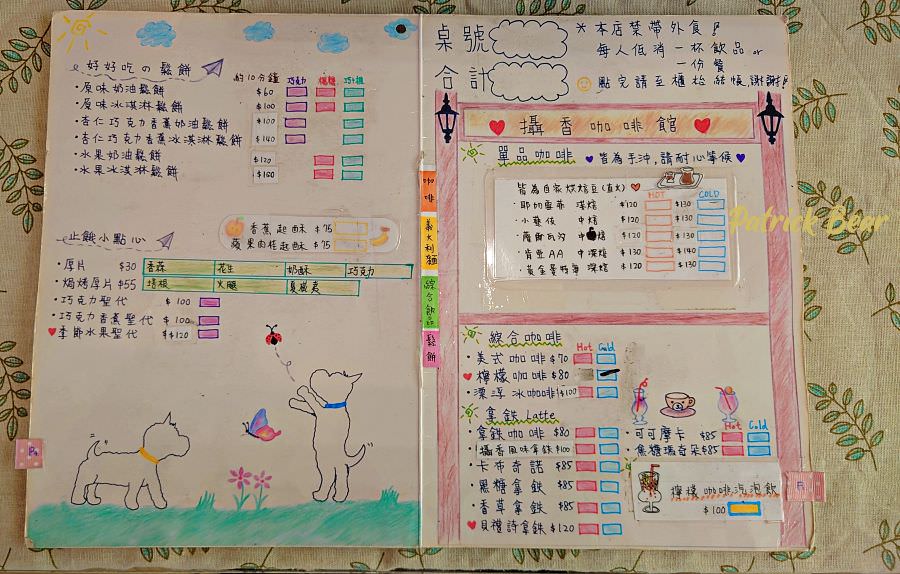 好好吃の鬆餅
約10分鐘 巧克力 楓糖 巧+楓
・原味奶油鬆餅 $60
・原味冰淇淋鬆餅 $100
・杏仁巧克力香蕉奶油鬆餅 $100
・杏仁巧克力香蕉冰淇淋鬆餅 $140
・水果奶油鬆餅 $120
・水果冰淇淋鬆餅 $160
香蕉起酥 $75
蘋果肉桂起酥 $75
止餓小點心
・厚片 $30 香蒜 花生 奶酥 巧克力
・焗烤厚片 $55 培根 火腿 夏威夷
・巧克力聖代 $100
・巧克力香蕉聖代 $100
季節水果聖代 $120
P4
咖啡
義大利麵
綜合飲品
鬆餅
桌號
合計
*本店禁帶外食!
每人低消一杯飲品or
一份餐
點完請至櫃枱結帳,謝謝!
攝香咖啡館
單品咖啡 皆為手沖,請耐心等候
皆為自家烘焙豆(直火)
HOT COLD
・耶加雪菲 淺焙 $120 $130
・小藝伎 中焙 $120 $130
・薩斯瓦乃 中焙 $120 $130
・肯亞AA 中深焙 $130 $140
・黃金曼特寧 深焙 $120 $130
綜合咖啡
Hot Cold
・美式咖啡 $70
檸檬咖啡 $80
・漂浮冰咖啡 $100
拿鐵Latte
・拿鐵咖啡 $80
・攝香風味拿鐵 $100
・卡布奇諾 $85
・黑糖拿鐵 $85
・香草拿鐵 $85
貝禮詩拿鐵 $120
Hot Cold
・可可摩卡 $85
・焦糖瑪奇朵 $85
檸檬咖啡汽泡飲
$100
Patrick Bear